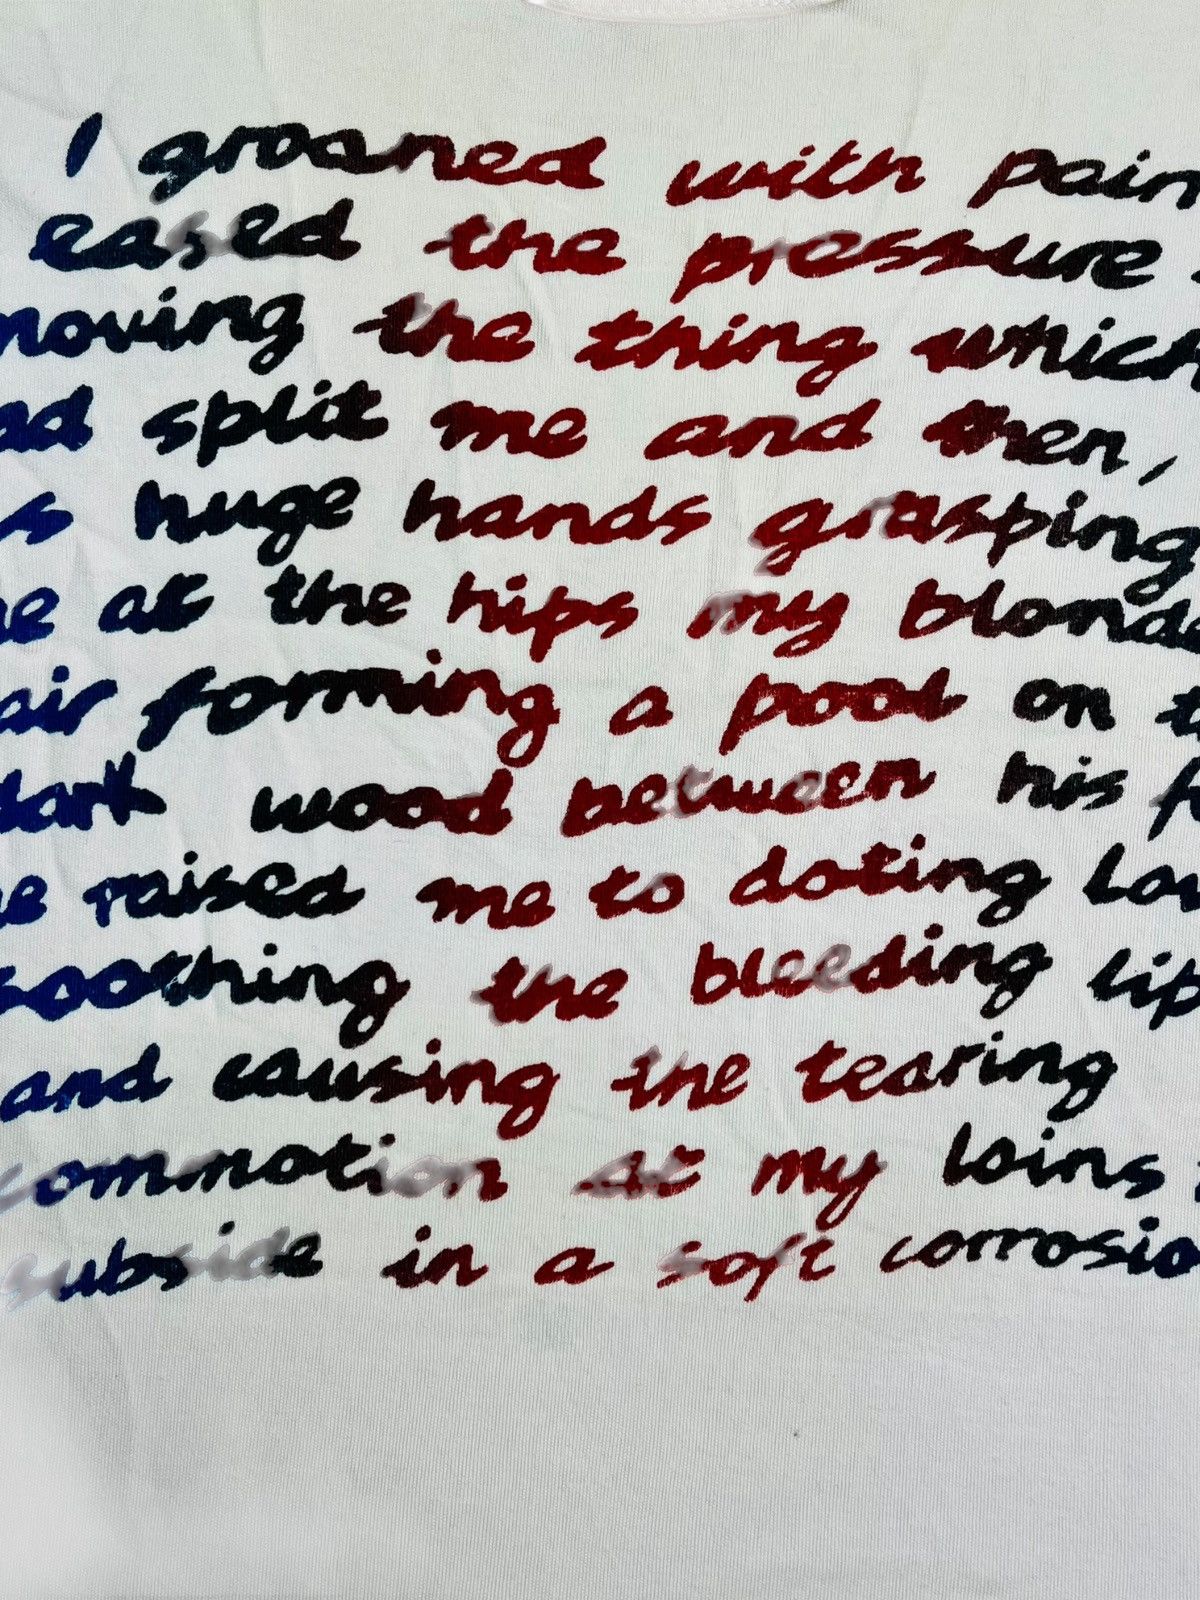 I groaned with pain
eased the pressure
moving the thing which
ad split me and then,
s huge hands grasping
e at the hips my blonde
air forming a pool on t
dark wood between his f
e raised me to doting lo
soothing the bleeding lip
and causing the tearing
commotion at my loins
subside in a soft corrosio